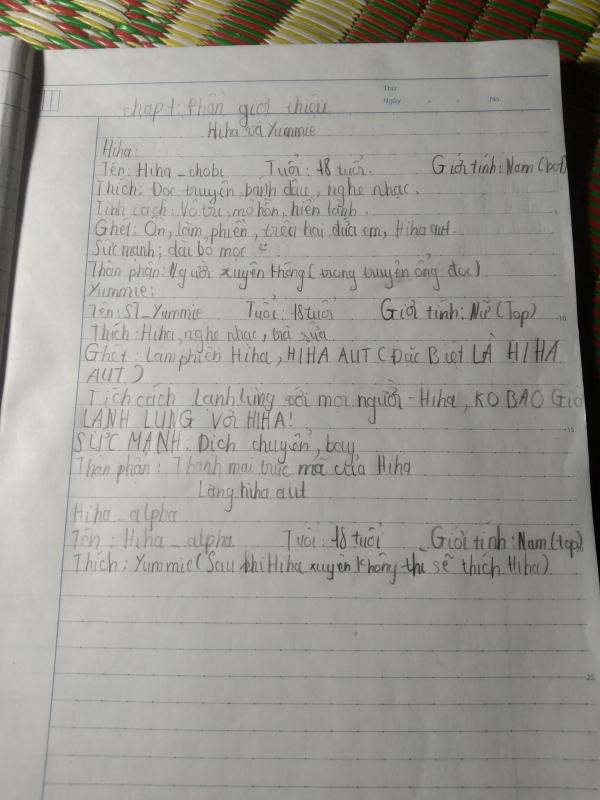 Thứ
Ngày . . No.
chap 1: Phần giới thiệu
Hiha và Yummie
Hiha:
Tên: Hiha_chobi Tuổi: 18 tuổi. Giới tính: Nam (bot)
Thích: Đọc truyện, bánh dâu, nghe nhạc.
Tính cách: Vô tri, mơ hồn, hiền lành.
Ghét: Ồn, làm phiền, trêu hai đứa em, Hiha aut.
Sức mạnh: dâu bò mọc
Thân phận: Người xuyên không (trong truyện ổng đọc)
Yummie:
Tên: ST_Yummie Tuổi: 18 tuổi Giới tính: Nữ (Top)
10
Thích: Hiha, nghe nhạc, trà sữa
Ghét: Làm phiền Hiha, HIHA AUT (Đặc Biệt LÀ HIHA
AUT)
Tích cách Lạnh lùng với mọi người - Hiha, KO BAO GIỜ
LẠNH LÙNG VỚI HIHA!
15
SỨC MẠNH: Dịch chuyển, bay
Thân phận: Thanh mai trúc mã của Hiha
Làng hiha aut
Hiha_alpha
Tên: Hiha_alpha Tuổi: 18 tuổi Giới tính: Nam (top)
Thích: Yummie (Sau khi Hiha xuyên không thì sẽ thích Hiha)
25